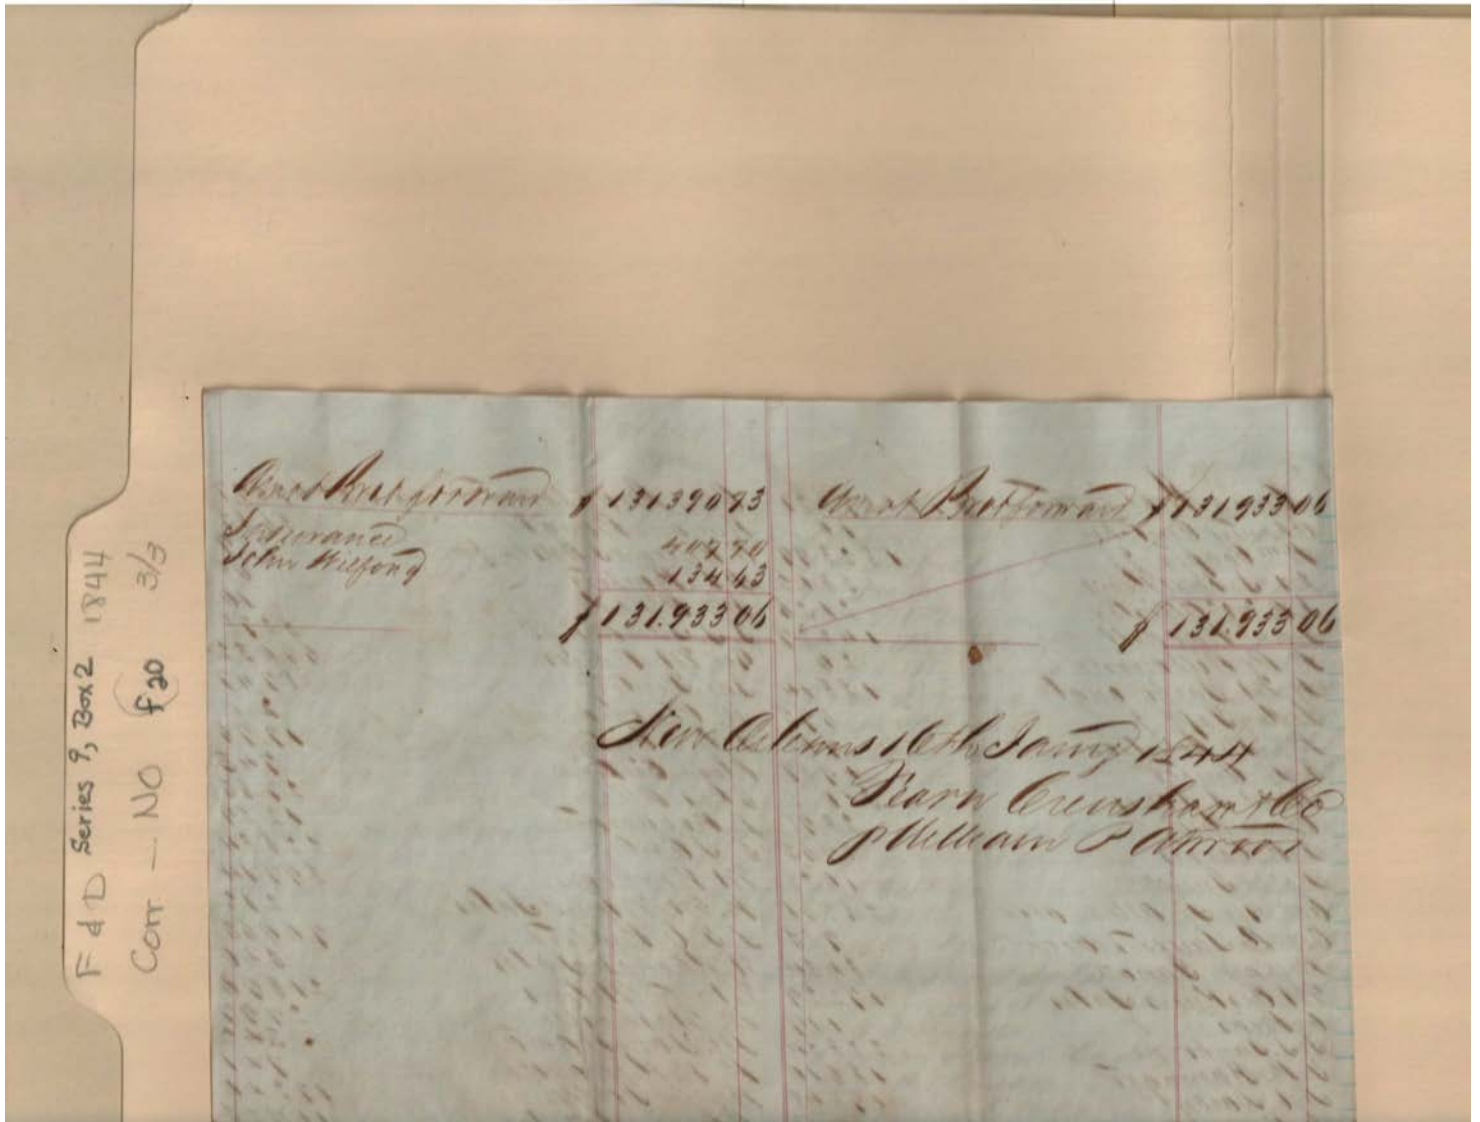 F & D Series 9, Box 2 1844
Corr – NO f20 3/3
Amot Brot forward $ 131390 73
Insurance 407 70
John Wilfong 134 63
$ 131.933 06
Amot Brot forward $ 131933 06
$ 131.933 06
New Orleans 16th Jany 1844
Fearn Crenshaw & Co
p William P